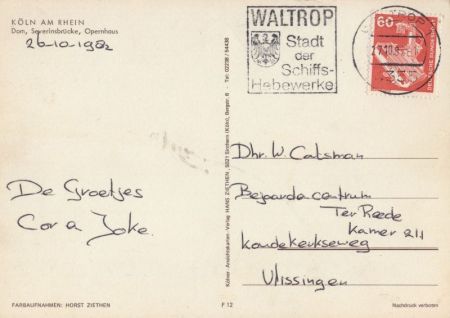 KÖLN AM RHEIN
Dom, Severinsbrücke, Opernhaus
26-10-1982
De Groetjes
Cor a Joke.
FARBAUFNAHMEN: HORST ZIETHEN
Kölner Ansichtskarten-Verlag HANS ZIETHEN, 5021 Sinthern (Köln), Bergstr. 6 - Tel: 02238 / 54438
F 12
WALTROP
Stadt
der
Schiffs-
Hebewerke
WALTROP
60
Dhr. W. Catsman
Bejaardencentrum
Ter Reede
Kamer 211
Koudekerkseweg
Vlissingen
Nachdruck verboten